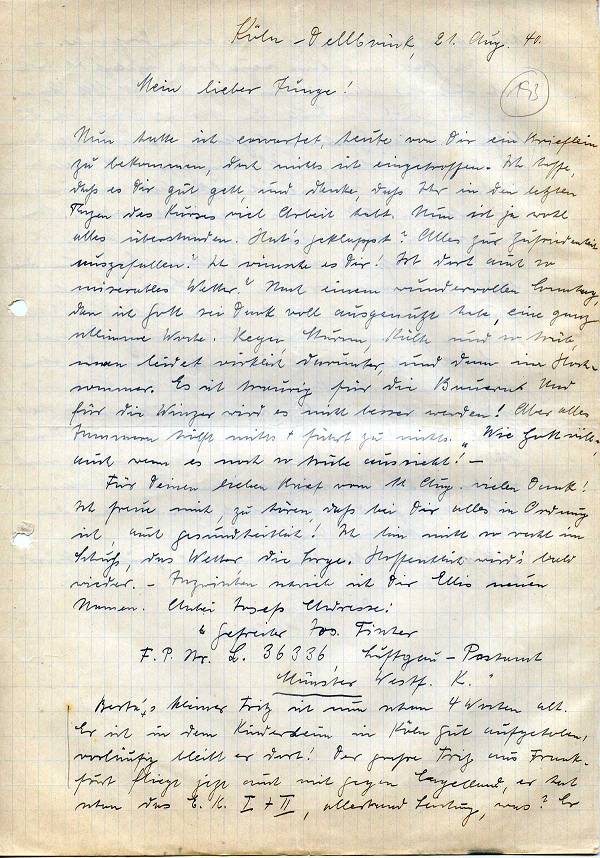 Köln-Dellbrück, 21. Aug. 40.
193
Mein lieber Junge!
Nun hatte ich erwartet, heute von Dir ein Brieflein
zu bekommen, doch nichts ist eingetroffen. Ich hoffe,
daß es Dir gut geht, und denke, daß Ihr in den letzten
Tagen des Kurses viel Arbeit habt. Nun ist ja wohl
alles überstanden. Hat's geklappt? Alles zur Zufriedenheit
ausgefallen? Ich wünsche es Dir! Ist dort auch so
miserables Wetter? Nach einem wundervollen Sonntag,
den ich Gott sei Dank voll ausgenützt habe, eine ganz
schlimme Woche. Regen, Sturm, Kälte und so trüb,
man leidet wirklich darunter, und denn im Hoch-
sommer. Es ist traurig für die Bauern! Und
für die Winzer wird es nicht besser werden! Aber alles
Jammern hilft nichts + führt zu nichts. „Wie Gott will,
auch wenn es noch so trübe aussieht! –
Für Deinen lieben Brief vom 18. Aug. vielen Dank!
Ich freue mich, zu hören, daß bei Dir alles in Ordnung
ist, auch gesundheitlich! Ich bin nicht so recht im
Schuß, das Wetter die Sorge. Hoffentlich wird's bald
wieder. – Inzwischen schrieb ich Dir Ellis neuen
Namen. Anbei Josefs Adresse:
„ Gefreiter Jos. Finter
F. P. Nr. L. 36336, Luftgau-Postamt
Münster Westf. K."
Berta's kleiner Fritz ist nun schon 4 Wochen alt.
Er ist in dem Kinderheim in Köln gut aufgehoben,
vorläufig bleibt er dort! Der große Fritz aus Frank-
furt fliegt jetzt auch mit gegen Engelland, er hat
schon das E. K. I + II, allerhand Leistung, was? Er